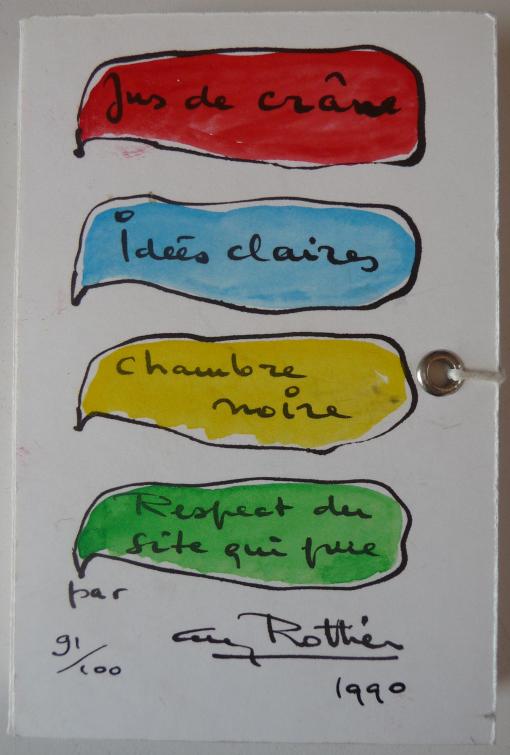 Jus de crâne
Idées claires
Chambre
noire
Respect du
site qui pue
par
91/100
Guy Rottier
1990